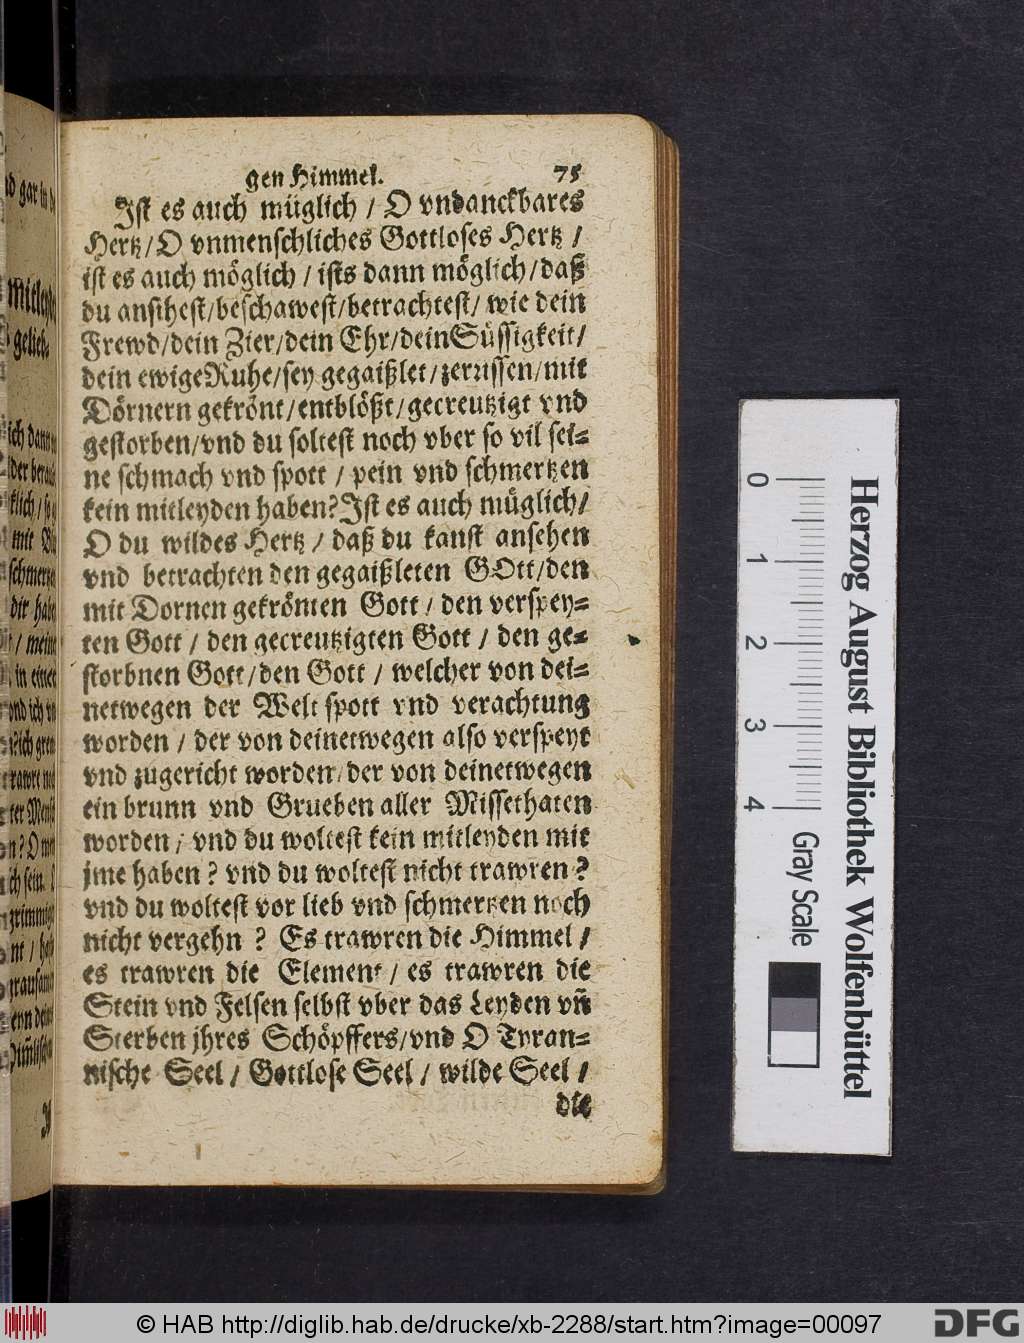 gen Himmel. 75
Ist es auch müglich / O vndanckbares
Hertz / O vnmenschliches Gottloses Hertz /
ist es auch möglich / ists dann möglich / daß
du ansihest / beschawest / betrachtest / wie dein
Frewd / dein Zier / dein Ehr / dein Süssigkeit /
dein ewige Ruhe / sey gegaißlet / zerrissen / mit
Dörnern gekrönt / entblößt / gecreutzigt vnd
gestorben / vnd du soltest noch vber so vil sei-
ne schmach vnd spott / pein vnd schmertzen
kein mitleyden haben? Ist es auch müglich /
O du wildes Hertz / daß du kanst ansehen
vnd betrachten den gegaißleten GOtt / den
mit Dornen gekrönten Gott / den verspey-
ten Gott / den gecreutzigten Gott / den ge-
storbnen Gott / den Gott / welcher von dei-
netwegen der Welt spott vnd verachtung
worden / der von deinetwegen also verspeyt
vnd zugericht worden / der von deinetwegen
ein brunn vnd Grueben aller Missethaten
worden / vnd du woltest kein mitleyden mit
jme haben? vnd du woltest nicht trawren?
vnd du woltest vor lieb vnd schmertzen noch
nicht vergehn? Es trawren die Himmel /
es trawren die Element / es trawren die
Stein vnd Felsen selbst vber das Leyden vñ
Sterben jhres Schöpffers / vnd O Tyran-
nische Seel / Gottlose Seel / wilde Seel /
die
Herzog August Bibliothek Wolfenbüttel
0 1 2 3 4 Gray Scale
© HAB http://diglib.hab.de/drucke/xb-2288/start.htm?image=00097
DFG